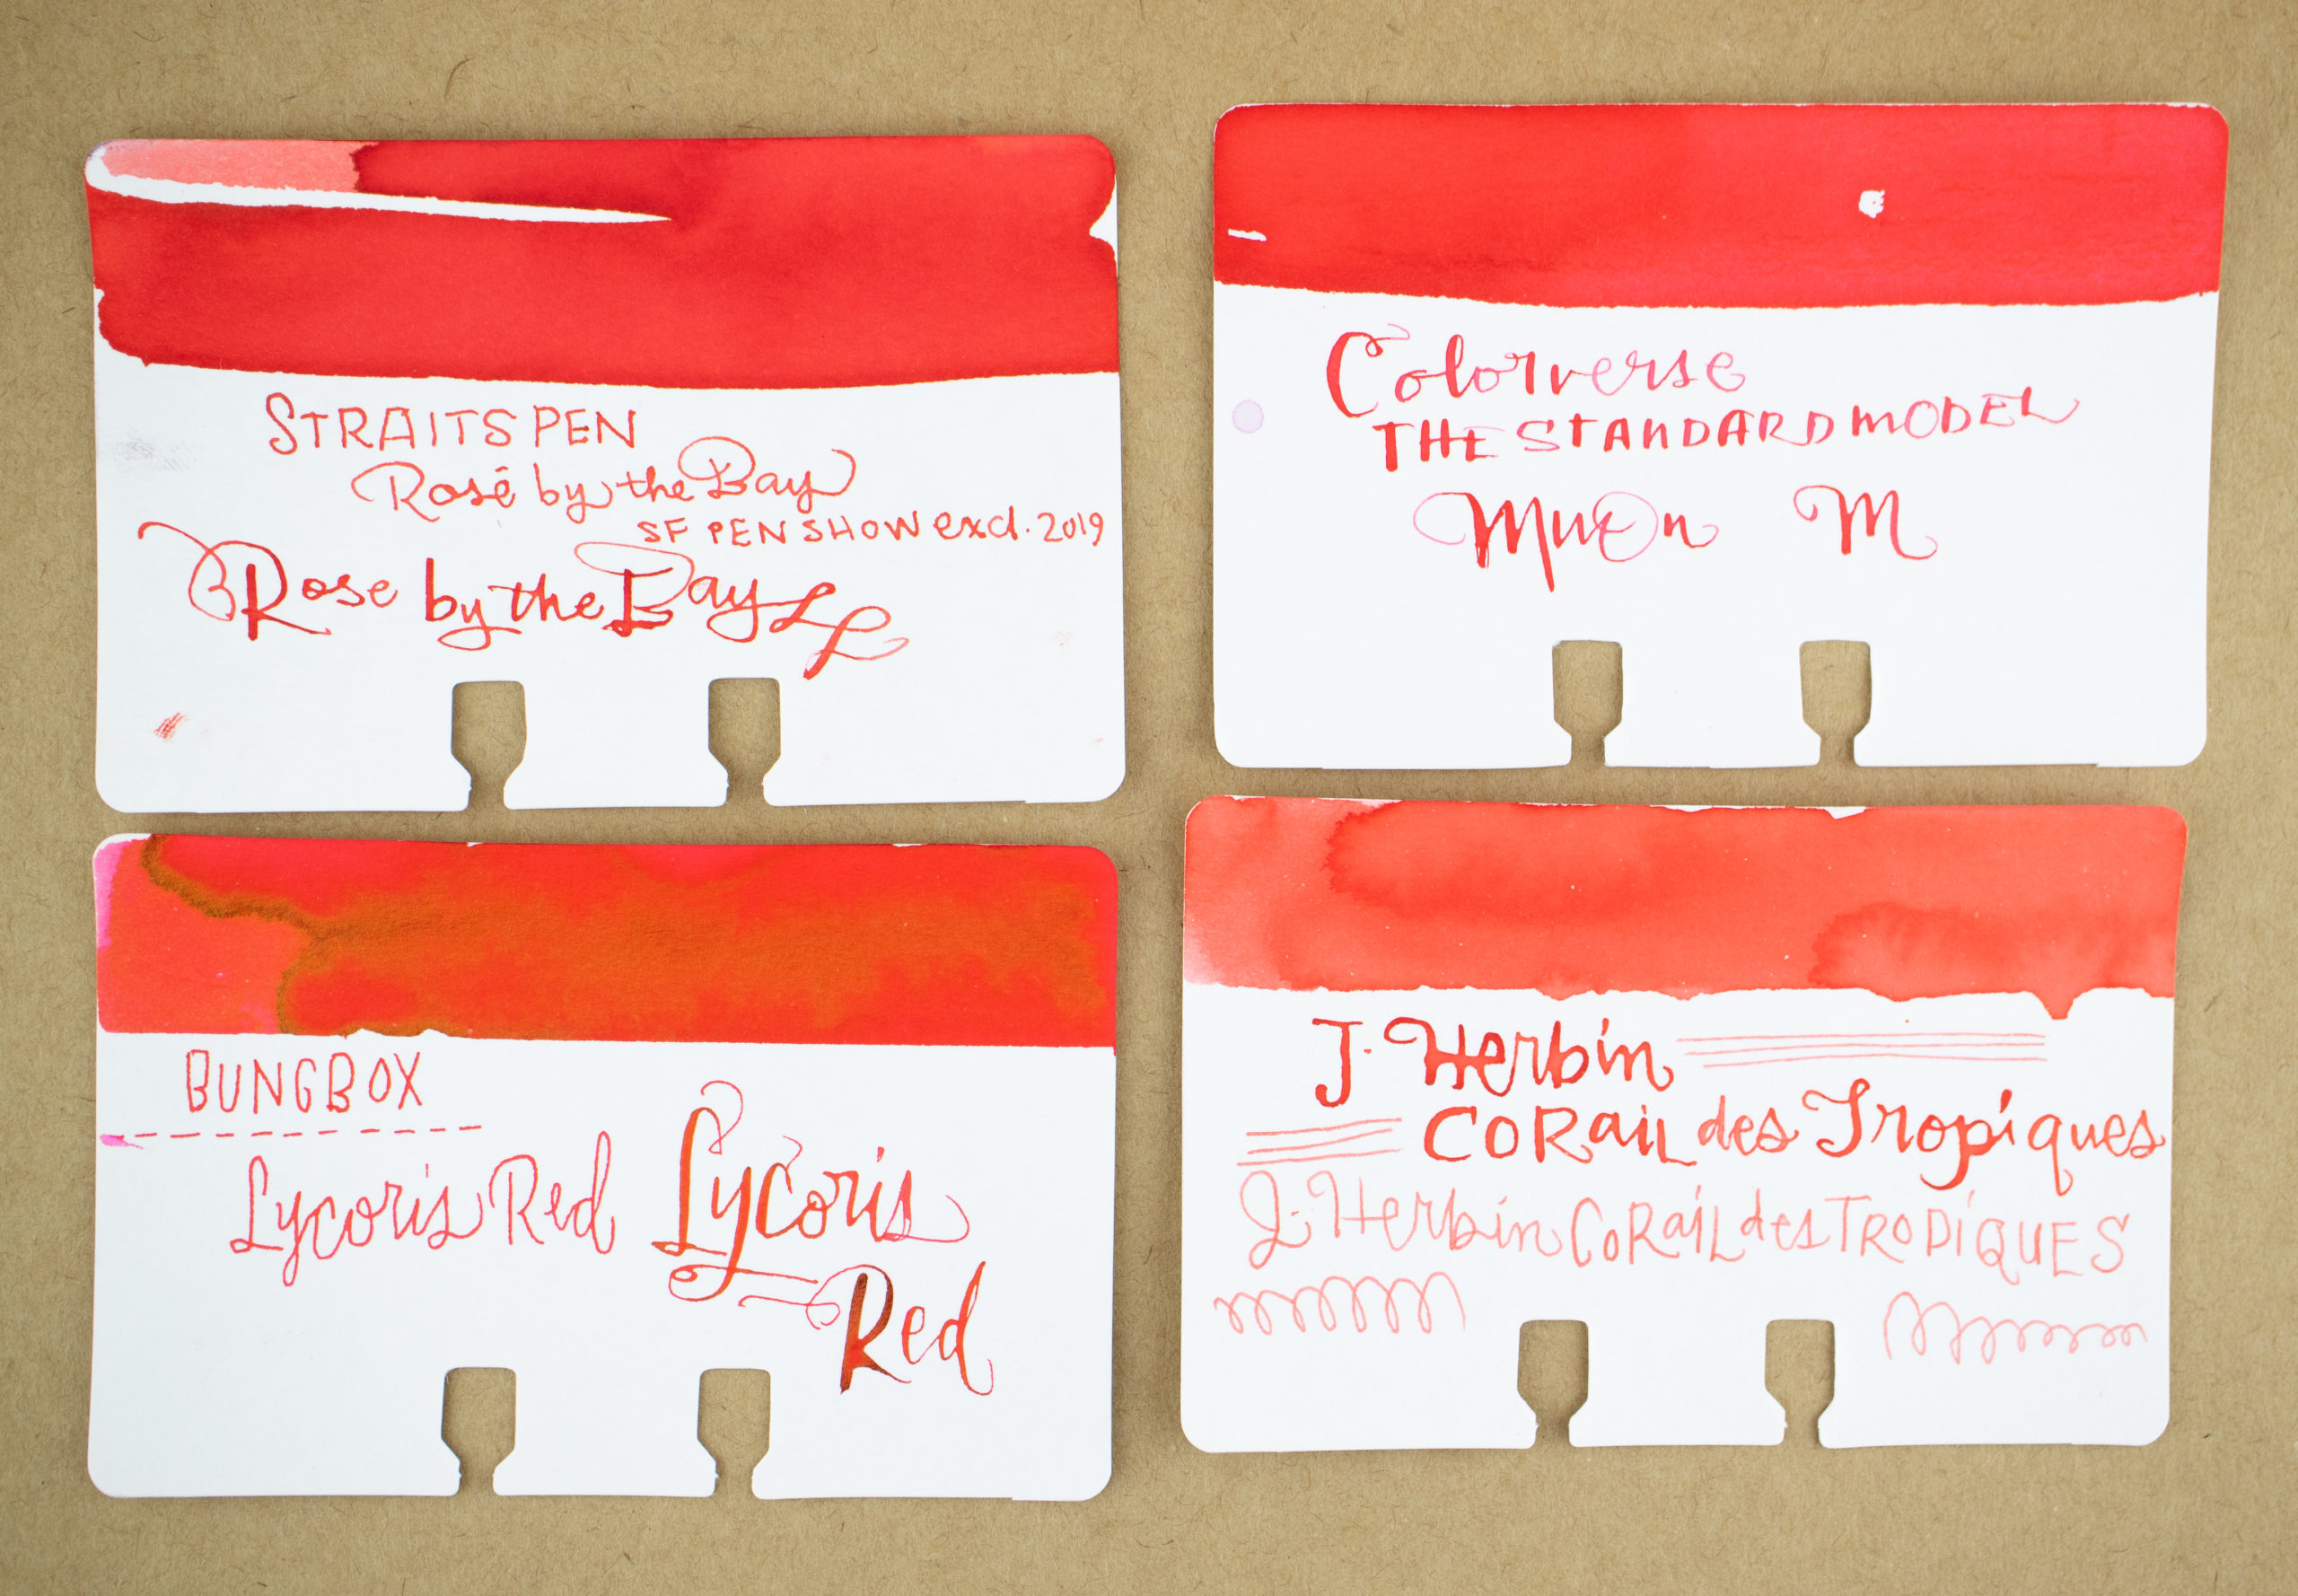 STRAITS PEN
Rosé by the Bay
SF PEN SHOW excl. 2019
Rose by the Bay
Colorverse
THE STANDARD MODEL
Muon M
BUNGBOX
Lycoris Red
Lycoris
Red
J. Herbin
CORail des Tropiques
J. Herbin CORail des TROPiQUES